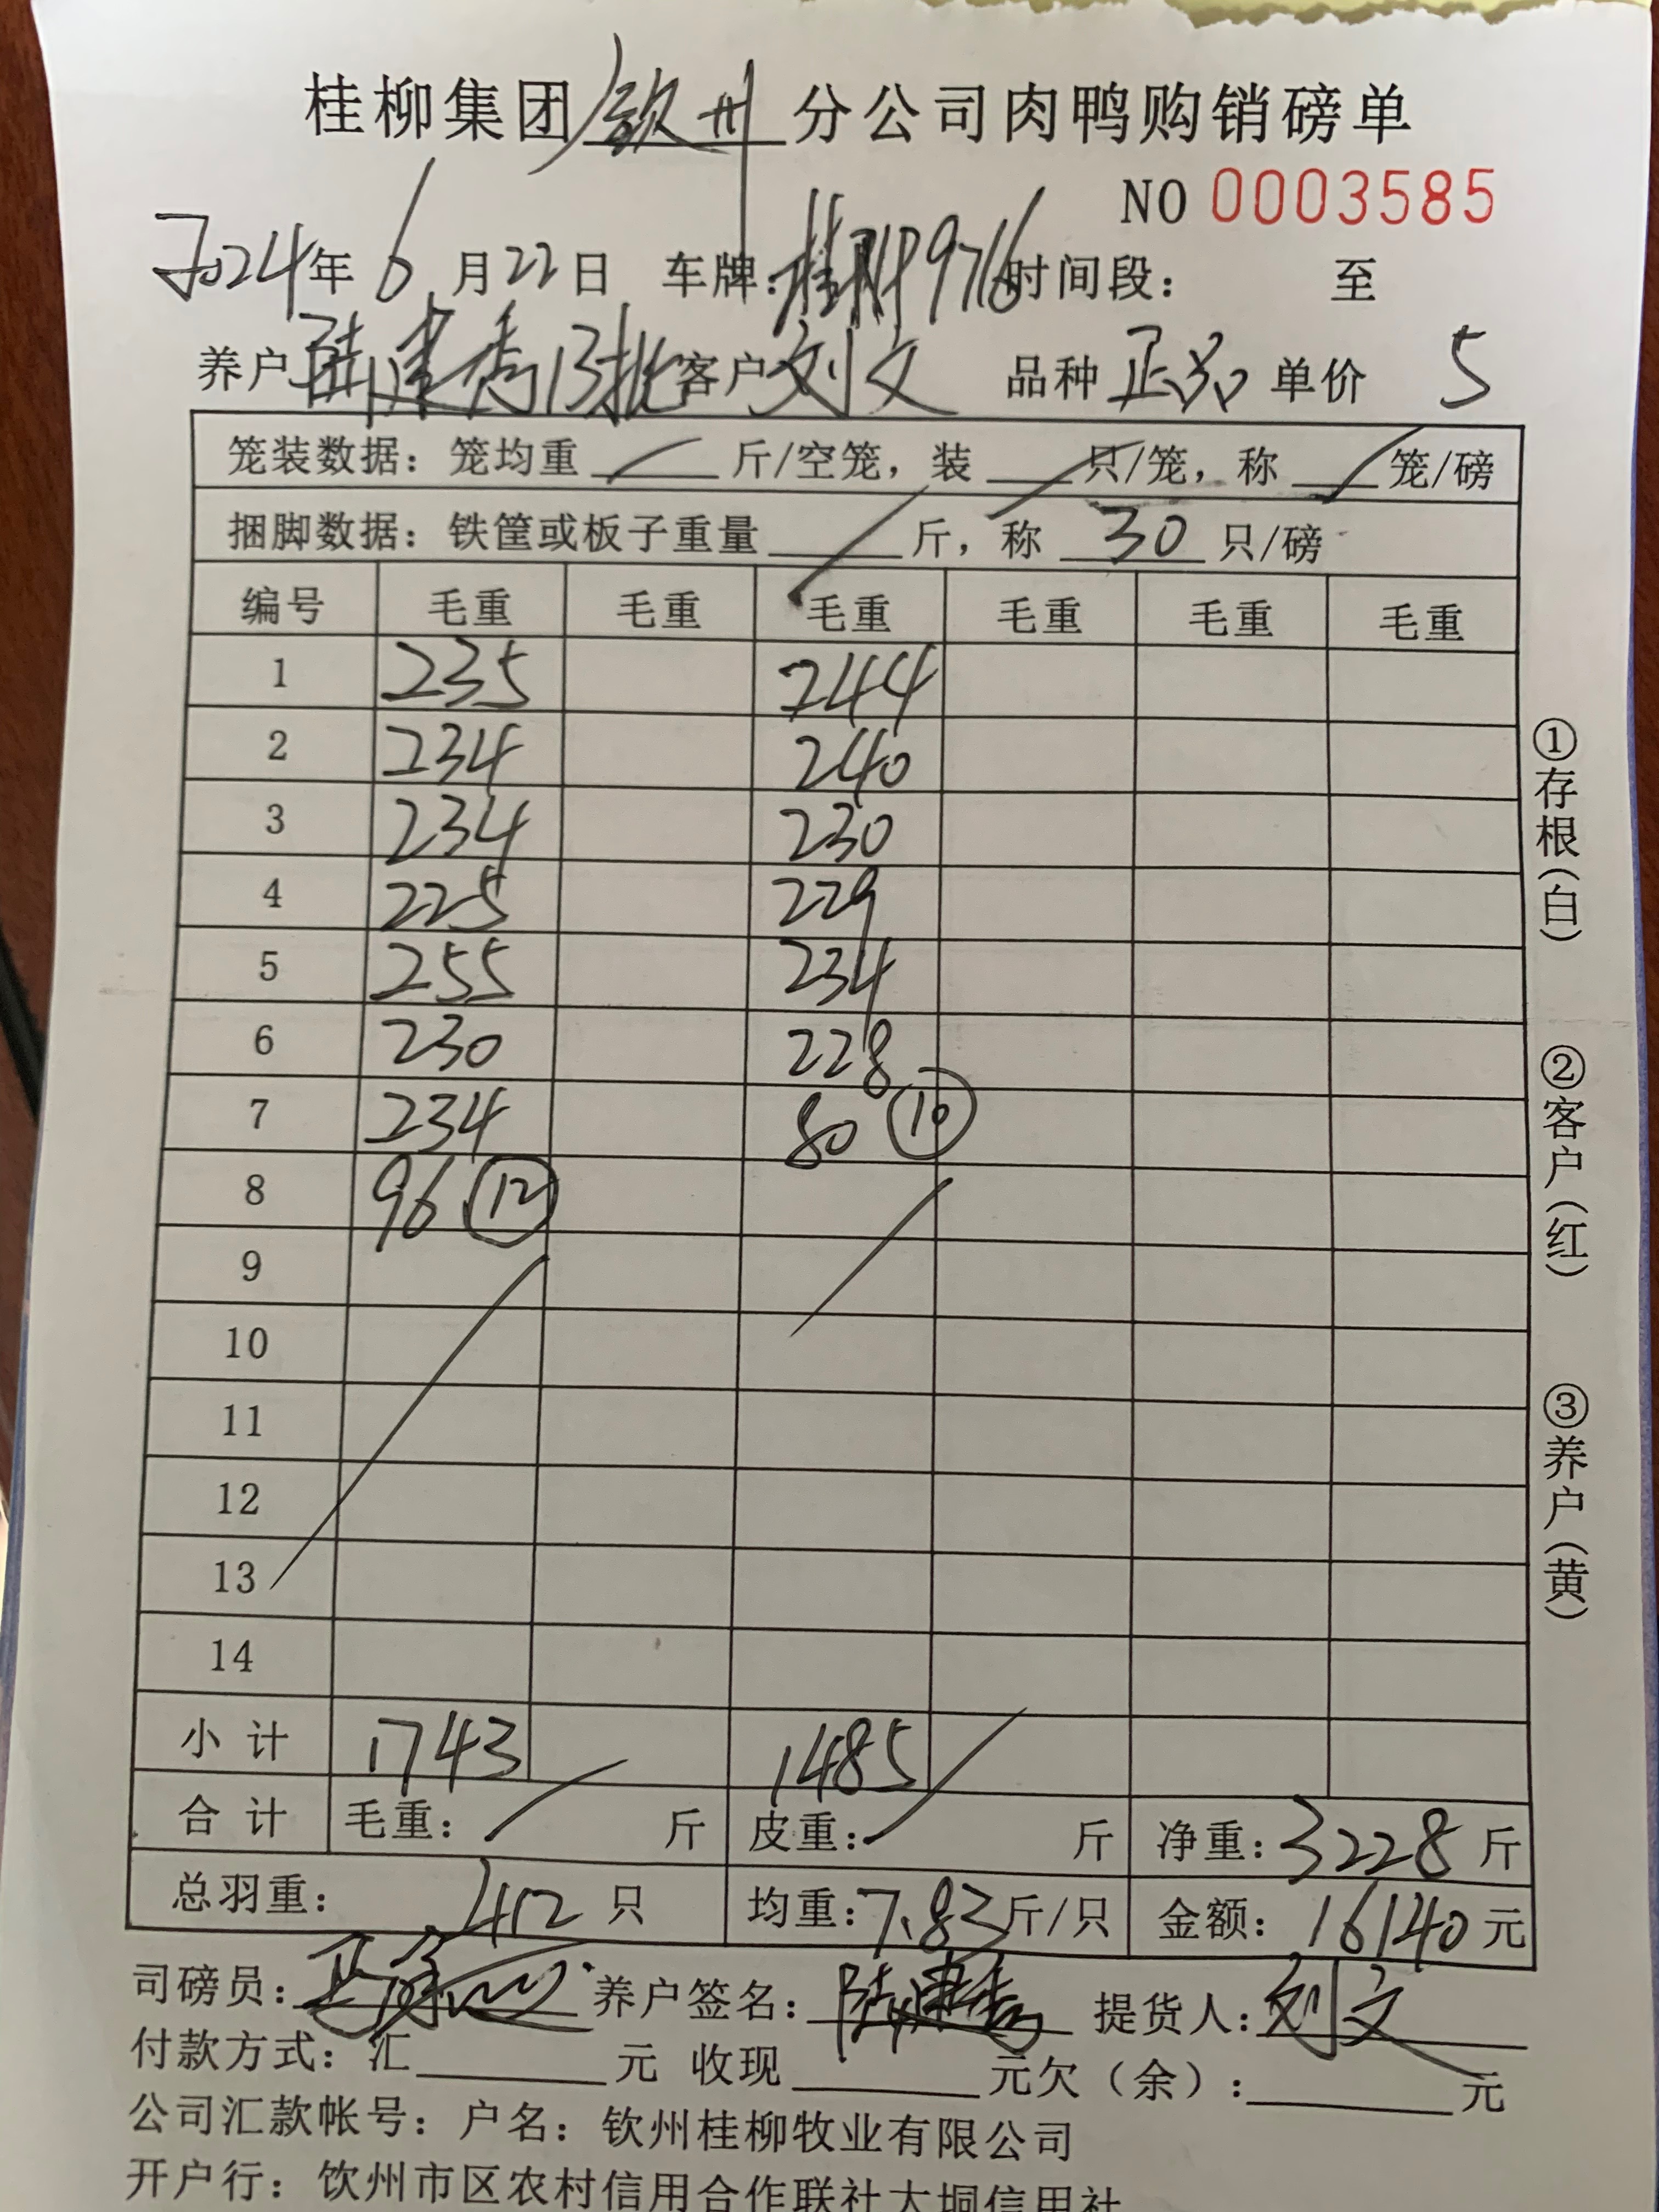 桂柳集团钦州分公司肉鸭购销磅单
NO 0003585
2024年6月22日 车牌：桂 9716 时间段： 至
养户陆建秀13批 客户刘文 品种正品 单价 5
笼装数据：笼均重 斤/空笼，装 只/笼，称 笼/磅
捆脚数据：铁筐或板子重量 斤，称 30 只/磅
编号 毛重 毛重 毛重 毛重 毛重 毛重
1 235 244
2 234 240
3 234 230
4 225 229
5 255 234
6 230 228
7 234 80 ⑩
8 96 ⑫
9
10
11
12
13
14
小计 1743 1485
合计 毛重： 斤 皮重： 斤 净重：3228斤
总羽重： 412 只 均重：7.83斤/只 金额：16140元
司磅员： 养户签名：陆建秀 提货人：刘文
付款方式：汇 元 收现 元欠（余）： 元
公司汇款帐号：户名：钦州桂柳牧业有限公司
开户行：钦州市区农村信用合作联社大垌信用社
①存根（白）
②客户（红）
③养户（黄）